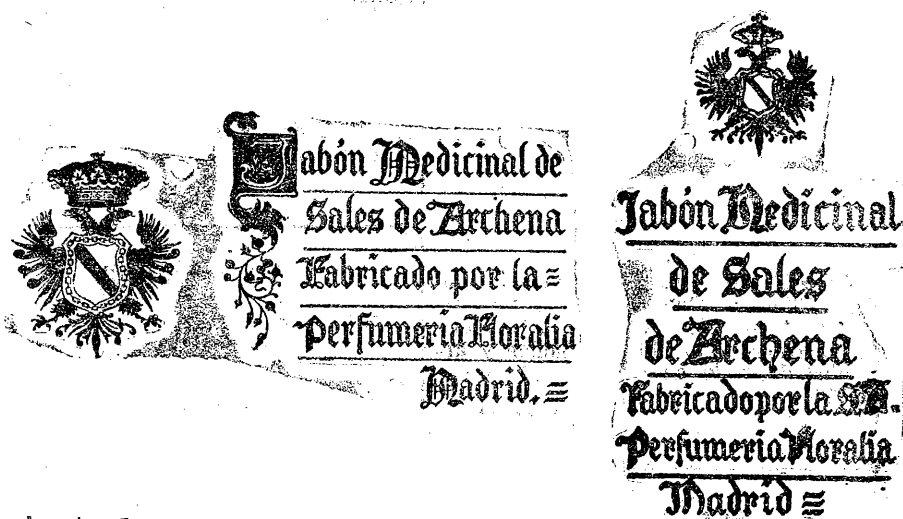 Jabón Medicinal de
Sales de Archena
Fabricado por la=
Perfumeria Floralia
Madrid.=
Jabón Medicinal
de Sales
de Archena
Fabricado por la
Perfumeria Floralia
Madrid=